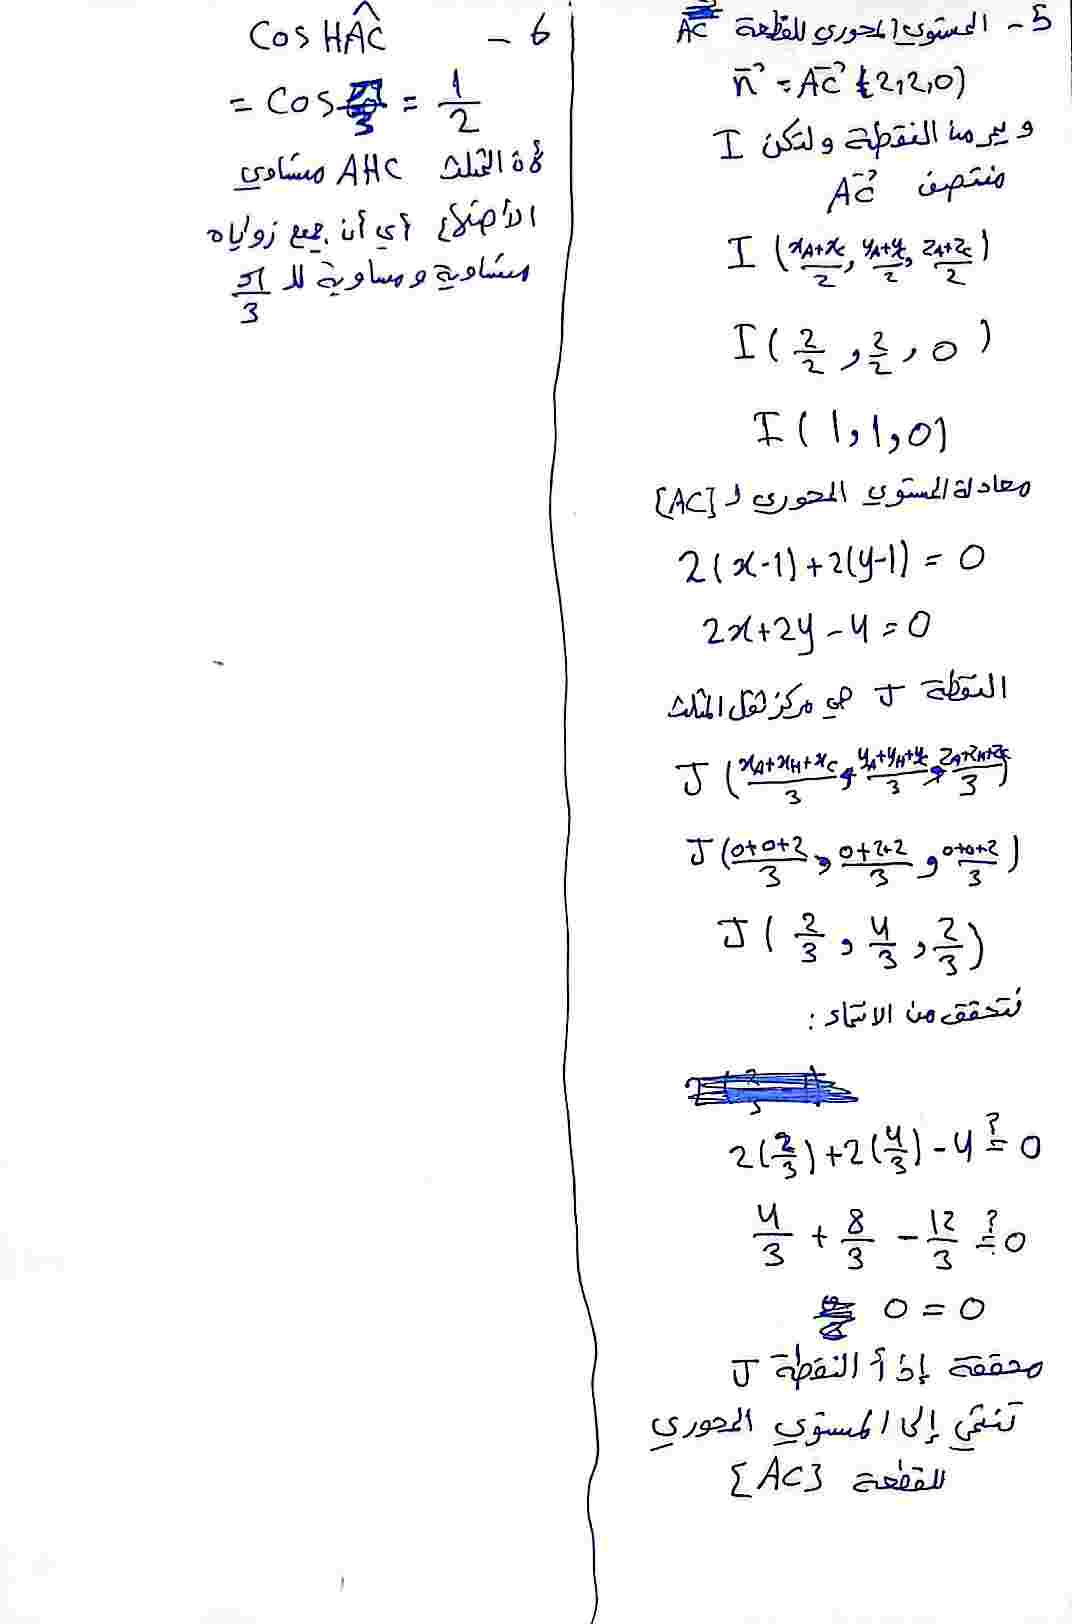 5 - المستوي المحوري للقطعة AC
n⃗ = AC⃗ (2,2,0)
و يمر من النقطة ولتكن I
منتصف AC⃗
I ( (xA+xC)/2 , (yA+yC)/2 , (zA+zC)/2 )
I ( 2/2 , 2/2 , 0 )
I ( 1 , 1 , 0 )
معادلة المستوي المحوري لـ [AC]
2(x-1)+2(y-1) = 0
2x+2y-4=0
النقطة J هي مركز ثقل المثلث
J ( (xA+xH+xC)/3 , (yA+yH+yC)/3 , (zA+zH+zC)/3 )
J ( (0+0+2)/3 , (0+2+2)/3 , (0+0+2)/3 )
J ( 2/3 , 4/3 , 2/3 )
نتحقق من الانتماء :
2(2/3)+2(4/3)-4 ≟ 0
4/3 + 8/3 - 12/3 ≟ 0
0 = 0
محققة إذاً النقطة J
تنتمي إلى المستوي المحوري
للقطعة [AC]
6 - Cos HÂC
= Cos π/3 = 1/2
لأن المثلث AHC متساوي
الأضلاع أي أن جميع زواياه
متساوية ومساوية للـ π/3